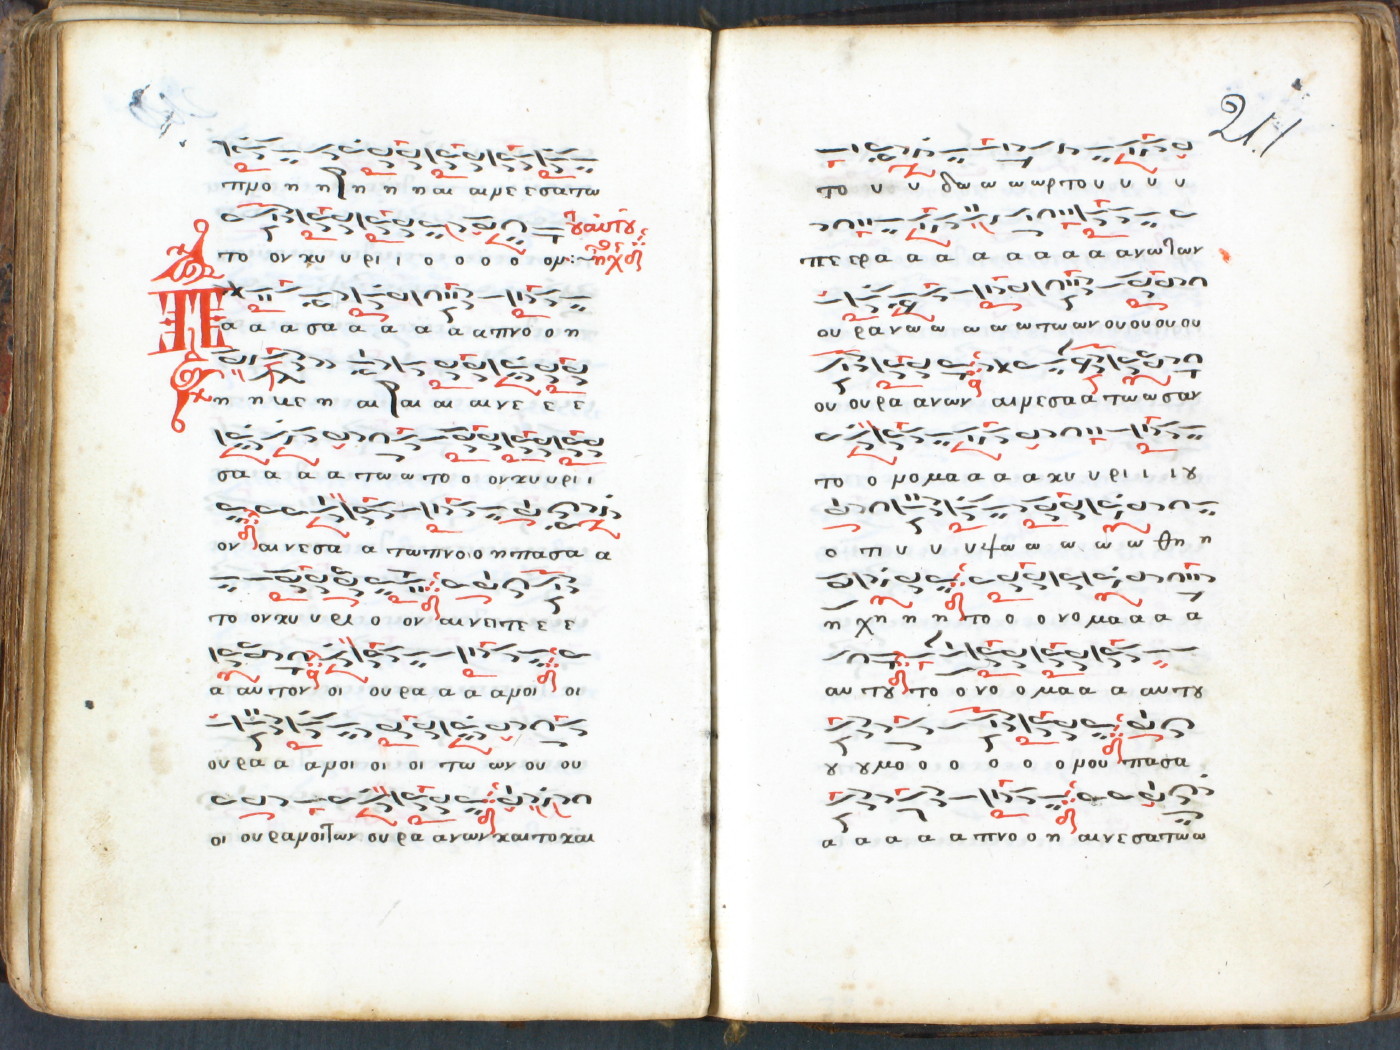 πμο η η η η η αι αι με ε σα τω
το ον κυ υ ρι ι ο ο ο ο ο ομ:~
Π α α α σα α α α α α πνο ο η
η η κε η αι αι αι αι νε ε ε
σα α α α τω ω το ο ον κυ υ ρι ι
ον αι νε σα α τω πνο ο η πα σα α
το ον κυ υ ρι ο ον αι νει τε ε ε
α αυ τον οι ου ρα α α α μοι οι
ου ρα α α μοι οι οι τω ων ου ου
οι ου ρα μοι των ου ρα α νων και το και
211
το υ υ δω ω ω ωρ το υ υ υ υ
πε ε ρα α α α α α α α α νω των
ου ρα νω ω ω ω ω τω ων ου ου ου ου
ου ου ρα α νων αι με σα α τω ω σαν
το ο μο μα α α α κυ υ ρι ι ι ȣ
ο πι υ υ υ ψω ω ω ω ω θη η
η χη η η το ο ο νο μα α α α
αυ τȣ το ο νο ο μα α α αυ τȣ
ȣ ȣ μο ο ο ο ο ο μου πα σα
α α α α α πνο ο η αι νε σα τω ω